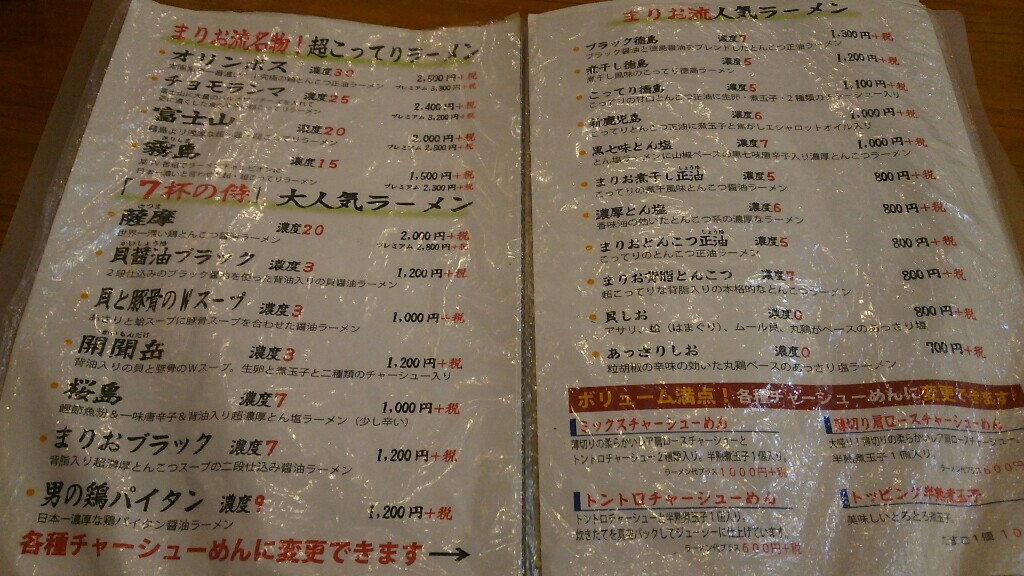 まりお流名物！超こってりラーメン
オリンポス 濃度30 2,500円+税
プレミアム 3,300円+税
チョモランマ 濃度25 2,400円+税
プレミアム 3,200円+税
富士山 濃度20 2,000円+税
プレミアム 2,800円+税
霧島 濃度15 1,500円+税
プレミアム 2,300円+税
「7杯の侍」大人気ラーメン
さつま
薩摩 濃度20 2,000円+税
世界一濃い鶏とんこつ醤油ラーメン プレミアム 2,800円+税
かいしょうゆ
貝醤油ブラック 濃度3 1,200円+税
2段仕込みのブラック醤油を使った背油入りの貝醤油ラーメン
貝と豚骨のWスープ 濃度3 1,000円+税
あさりと蛤スープに豚骨スープを合わせた醤油ラーメン
かいもんだけ
開聞岳 濃度3 1,200円+税
背油入りの貝と豚骨のWスープ。生卵と煮玉子と二種類のチャーシュー入り
桜島 濃度7 1,000円+税
鰹節魚粉&一味唐辛子&背油入り超濃厚とん塩ラーメン（少し辛い）
まりおブラック 濃度7 1,200円+税
背脂入り超濃厚とんこつスープの二段仕込み醤油ラーメン
男の鶏パイタン 濃度9 1,200円+税
日本一濃厚な鶏パイタン醤油ラーメン
各種チャーシューめんに変更できます→
まりお流人気ラーメン
ブラック徳島 濃度7 1,300円+税
ブラック醤油と徳島醤油をブレンドしたとんこつ正油ラーメン
煮干し徳島 濃度5 1,200円+税
煮干し風味のこってり徳島ラーメン
こってり徳島 濃度5 1,100円+税
こってりの甘口とんこつ正油に生卵・煮玉子・2種類のチャーシュー入り
新鹿児島 濃度6 1,000円+税
こってりとんこつ正油に煮玉子と焦がしエシャロットオイル入り
黒七味とん塩 濃度7 1,000円+税
とん塩ラーメンに山椒ベースの黒七味唐辛子入り濃厚とんこつラーメン
しょうゆ
まりお煮干し正油 濃度5 800円+税
こってりの煮干風味とんこつ醤油ラーメン
濃厚とん塩 濃度6 800円+税
香味油の効いたとんこつ系の濃厚なラーメン
しょうゆ
まりおとんこつ正油 濃度5 800円+税
まりお背脂とんこつ 濃度7 800円+税
超こってりな背脂入りの本格的なとんこつラーメン
貝しお 濃度0 800円+税
アサリ、蛤（はまぐり）、ムール貝、丸鶏がベースのあっさり塩
あっさりしお 濃度0 700円+税
粒胡椒の辛味の効いた丸鶏ベースのあっさり塩ラーメン
ボリューム満点！各種チャーシューめんに変更できます！
ミックスチャーシューめん
薄切りの柔らかいレア肩ロースチャーシューと
トントロチャーシュー2種類入り。半熟煮玉子1個入り。
ラーメン代プラス1000円+税
薄切り肩ロースチャーシューめん
半熟煮玉子1個入り。
ラーメン代プラス600円
トントロチャーシューめん
トントロチャーシューと半熟煮玉子1個入り。
炊きたてを真空パックしてジューシーに仕上げています。
ラーメン代プラス600円+税
トッピング半熟煮玉子
美味しいとろとろ煮玉子。
たまご1個 10